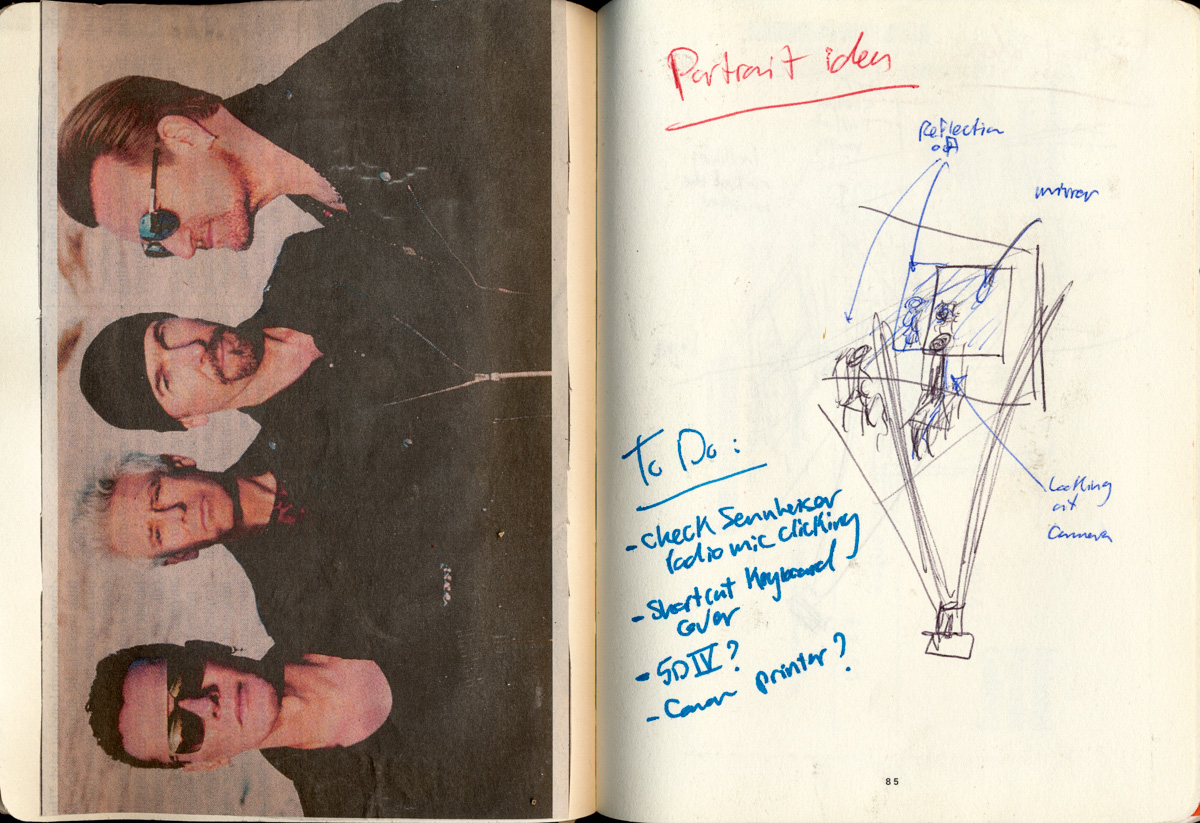 Portrait idea
Reflection
of A
mirror
To Do:
- check Sennheiser
radio mic clicking
- Shortcut Keyboard
cover
- 5D IV?
- Canon printer?
Looking
at
Camera
85